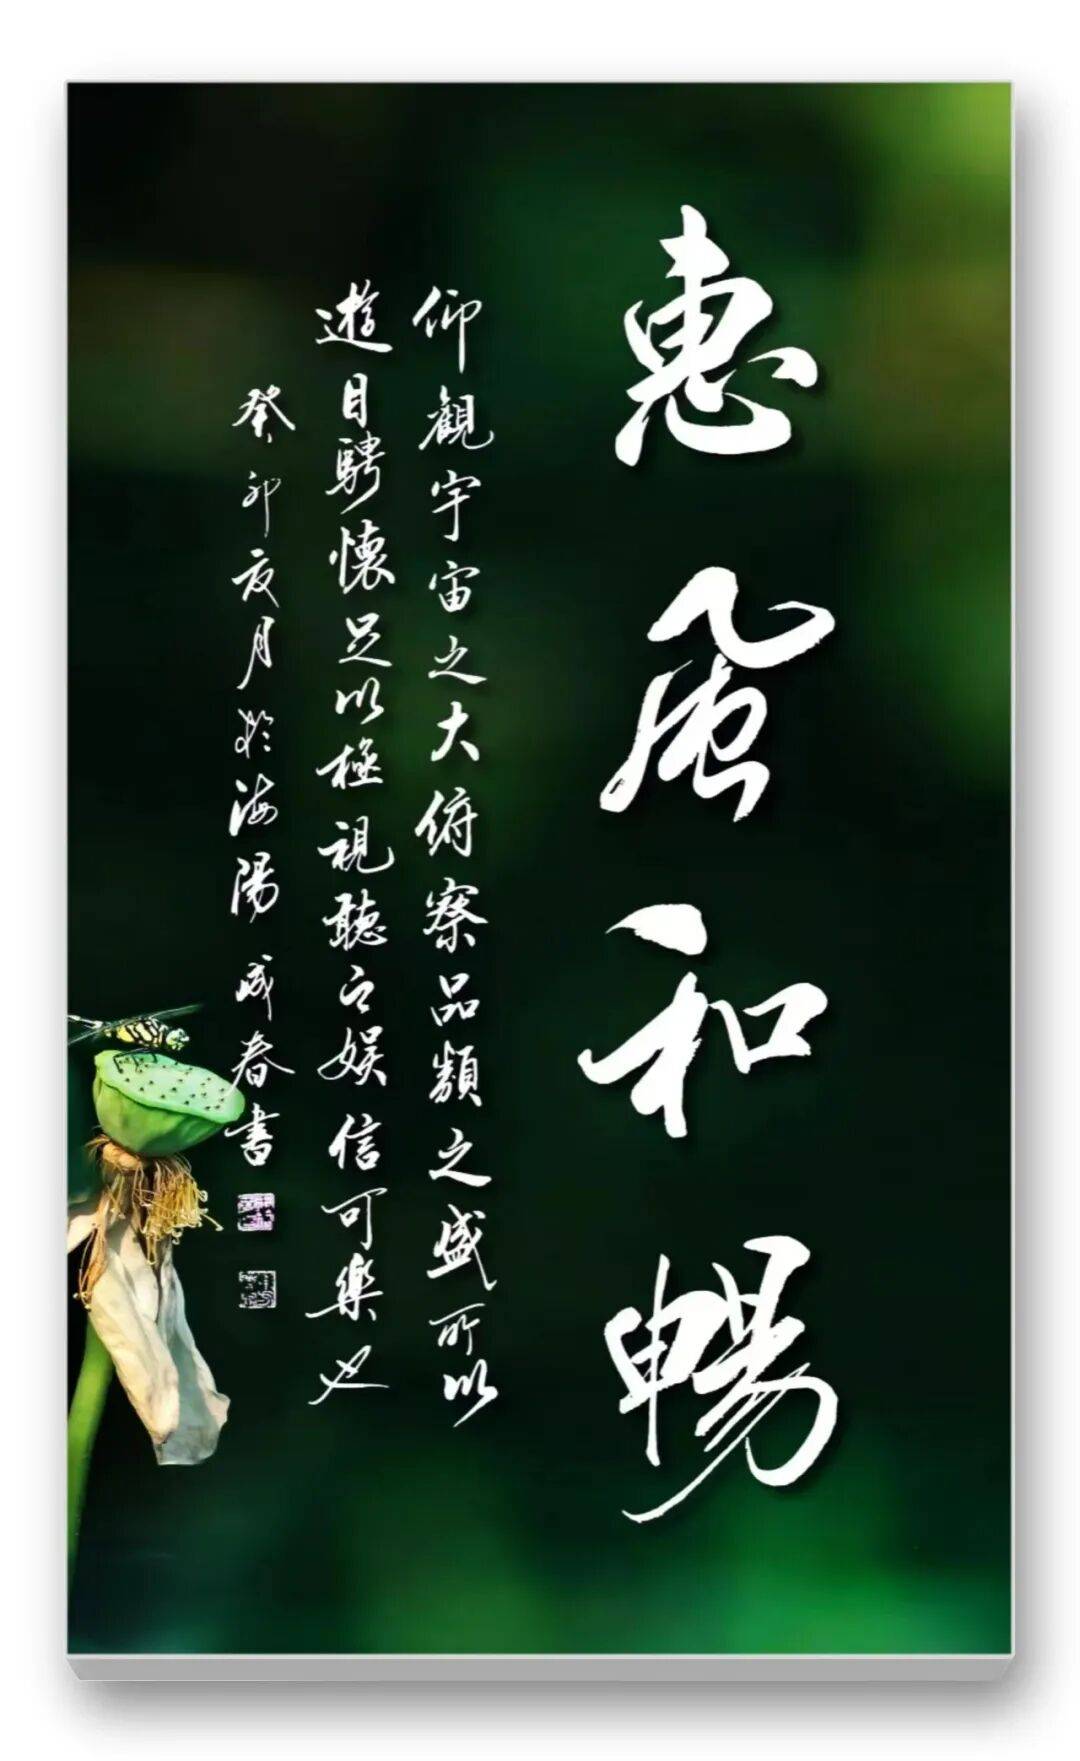 惠風和暢
仰觀宇宙之大俯察品類之盛所以
遊目騁懷足以極視聽之娛信可樂也
癸卯夏月於海陽成春書